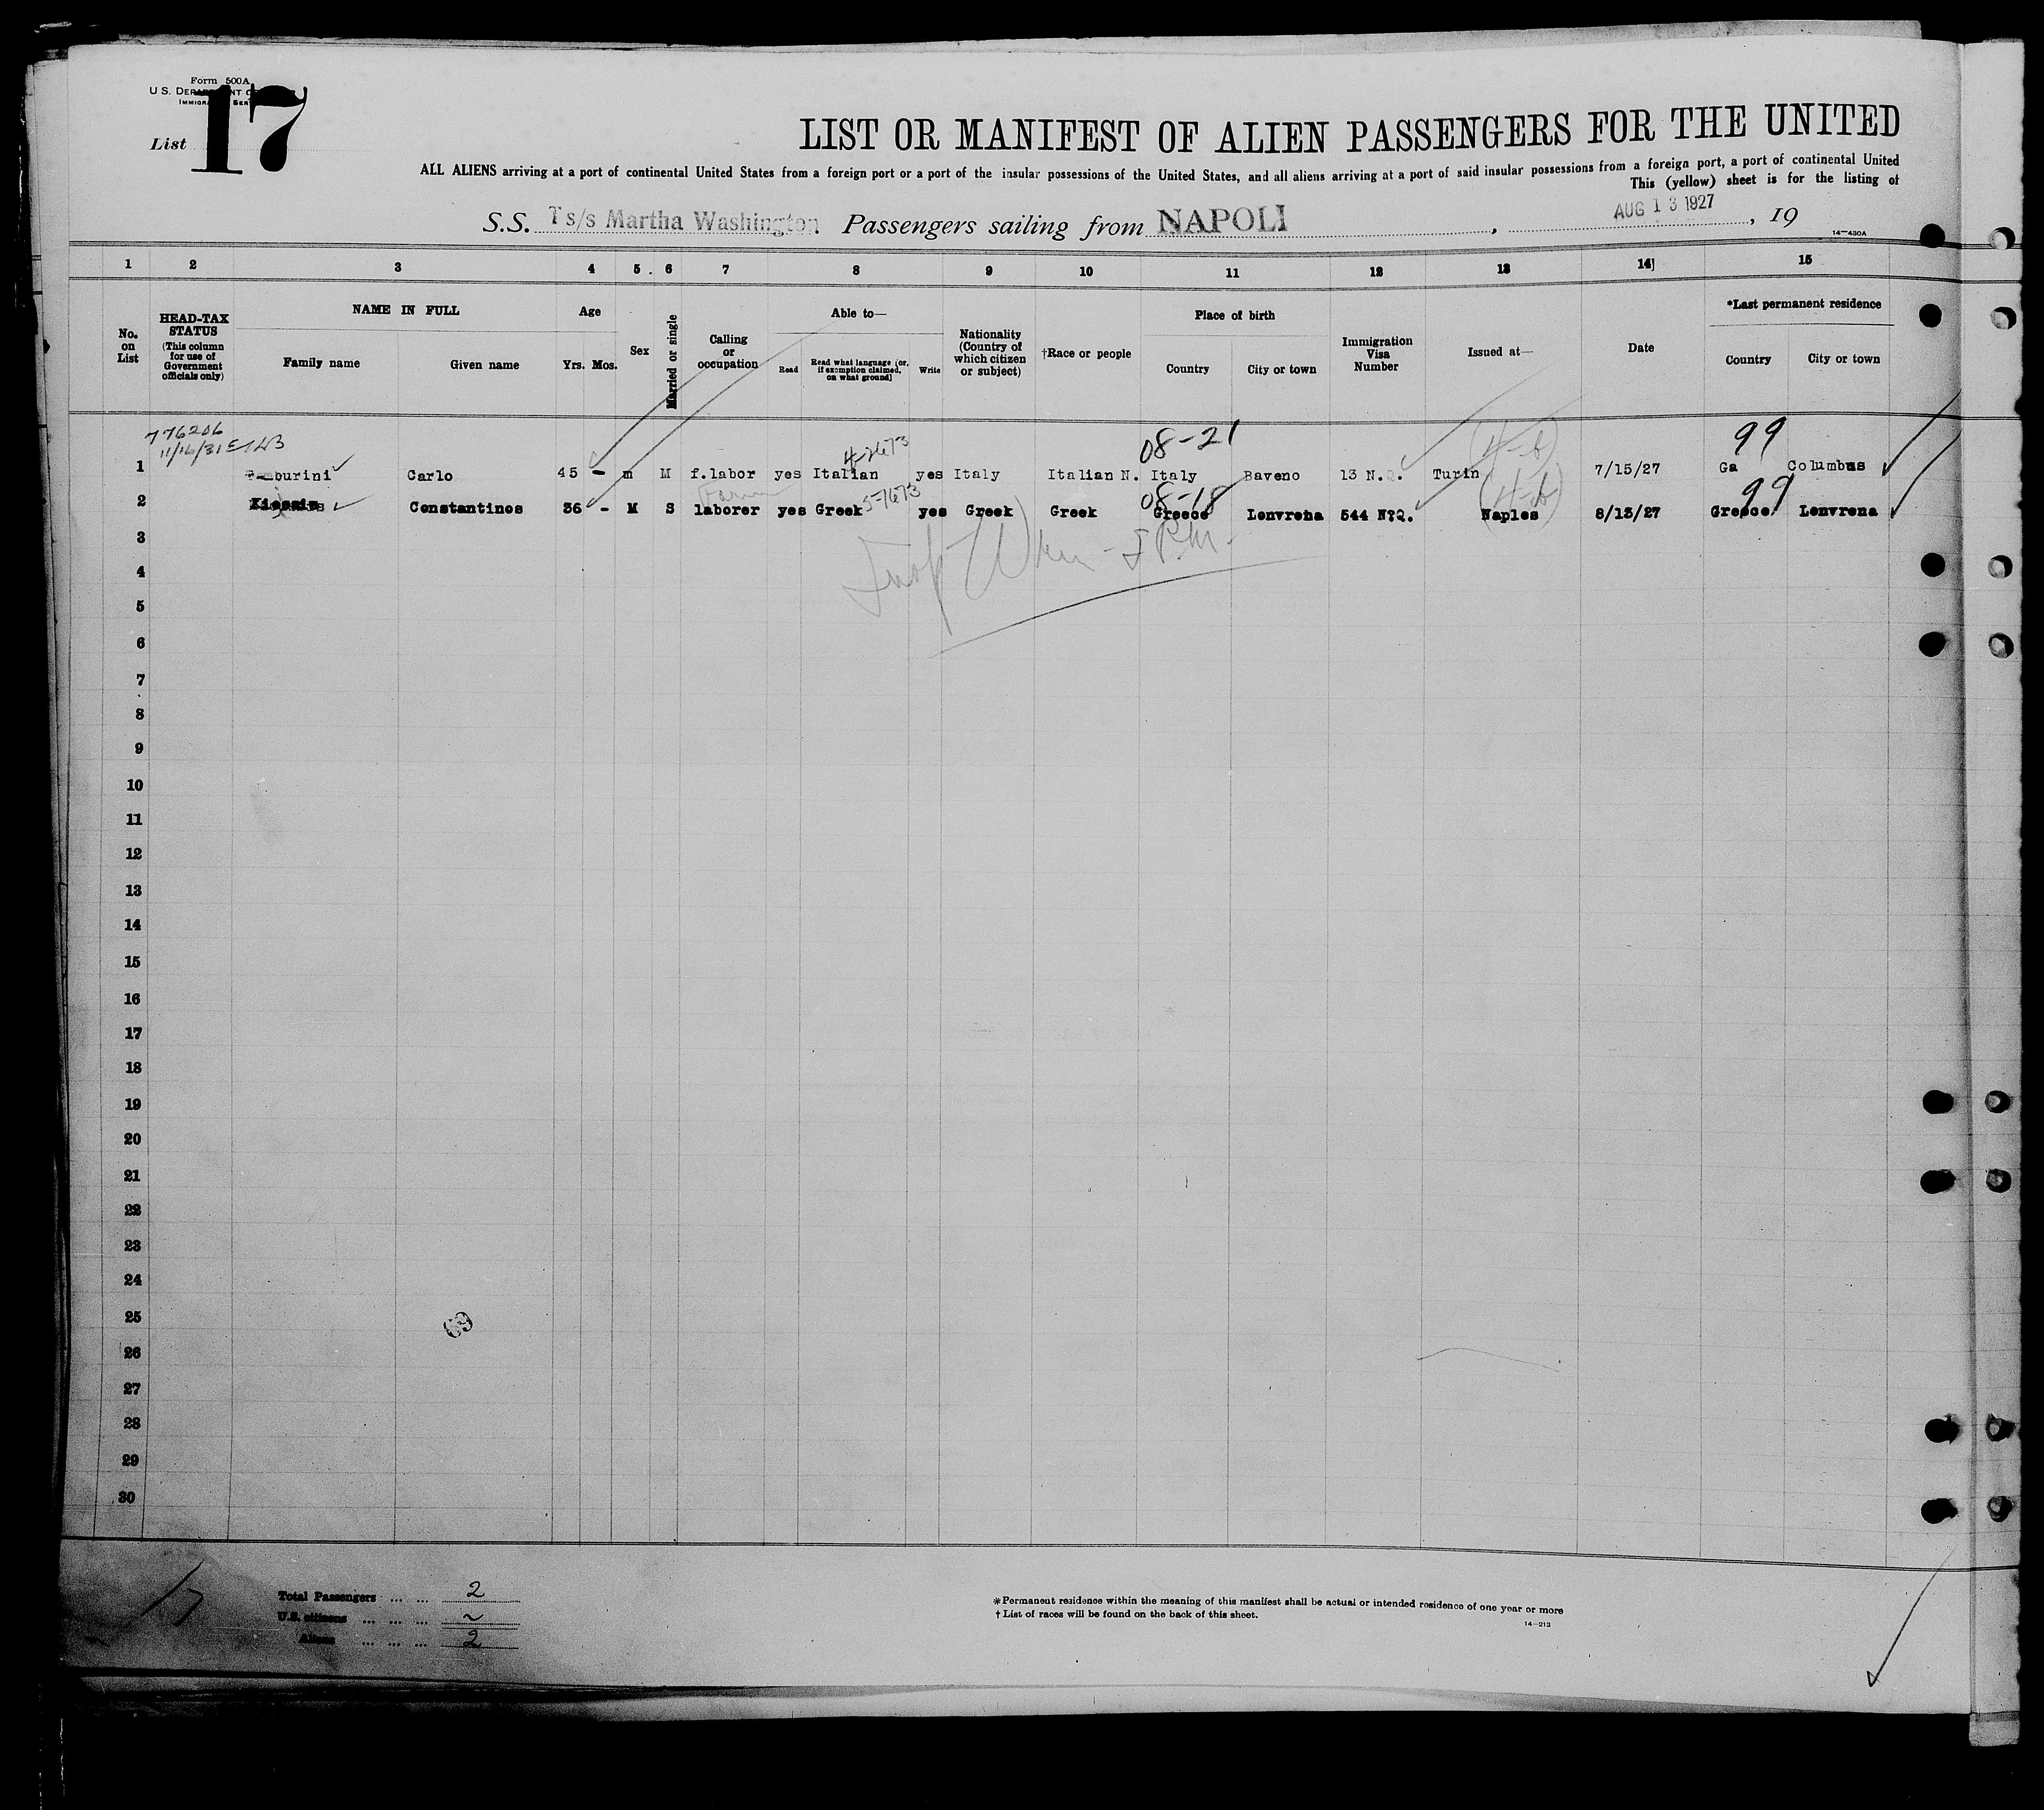 Form 500A
U.S. DEPARTMENT
IMMIGRA SER
List 17
LIST OR MANIFEST OF ALIEN PASSENGERS FOR THE UNITED
ALL ALIENS arriving at a port of continental United States from a foreign port or a port of the insular possessions of the United States, and all aliens arriving at a port of said insular possessions from a foreign port, a port of continental United
This (yellow) sheet is for the listing of
S.S. Ts/s Martha Washington Passengers sailing from NAPOLI , AUG 13 1927 , 19
14—430A
1 2 3 4 5 6 7 8 9 10 11 12 13 14 15
No. on List
HEAD-TAX STATUS (This column for use of Government officials only)
NAME IN FULL
Family name Given name
Age
Yrs. Mos.
Sex
Married or single
Calling or occupation
Able to—
Read Read what language [or, if exemption claimed, on what ground] Write
Nationality (Country of which citizen or subject)
†Race or people
Place of birth
Country City or town
Immigration Visa Number
Issued at—
Date
*Last permanent residence
Country City or town
776206
11/16/31
4-2673 08-21 (4-b) 99
1 Carlo 45 - m M f.labor yes Italian yes Italy Italian N. Italy Baveno 13 N. Turin 7/15/27 Ga Columbus
Farm 5-1673 08-18 (4-b) 99
2 Constantinos 36 - M S laborer yes Greek yes Greek Greek Greece Lenvrena 544 N?Q. Naples 8/13/27 Greece Lenvrena
3
4
5
6
7
8
9
10
11
12
13
14
15
16
17
18
19
20
21
22
23
24
25
69
26
27
28
29
30
17
Total Passengers ... ... 2
U.S. citizens ... ... ... ~
Aliens ... ... ... 2
*Permanent residence within the meaning of this manifest shall be actual or intended residence of one year or more
†List of races will be found on the back of this sheet.
14—213